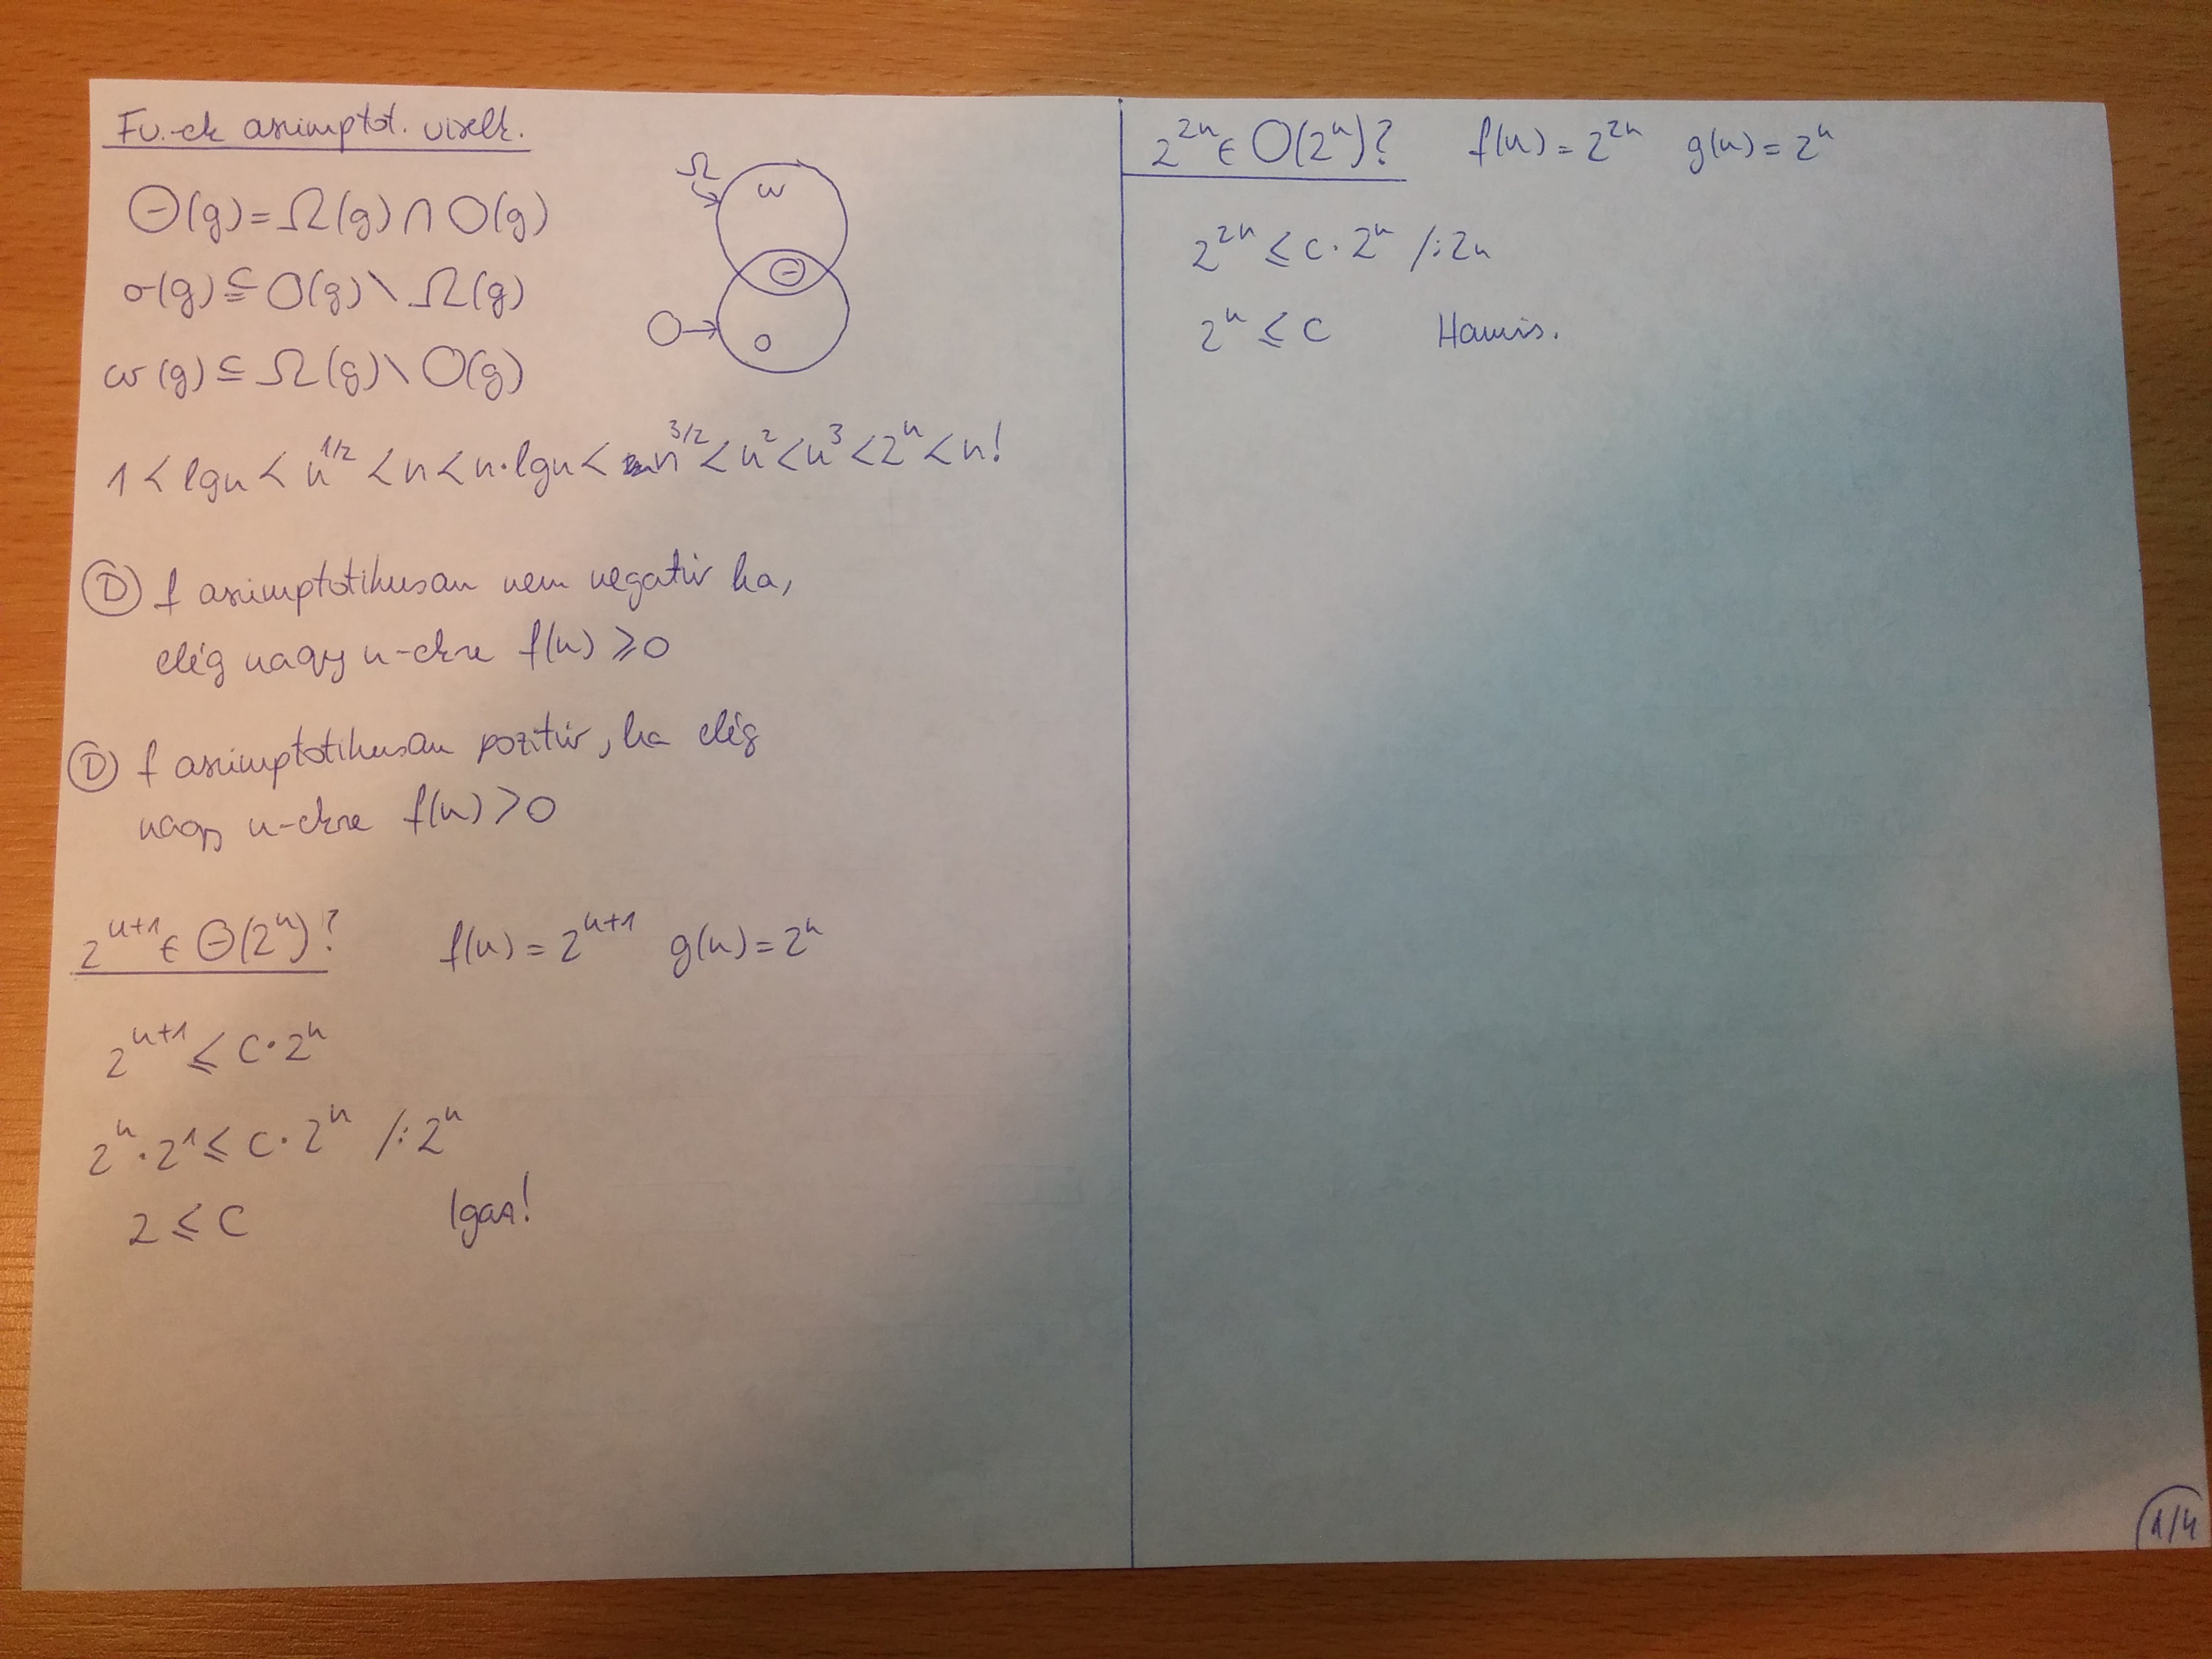 Fv.-ek aszimptot. viselk.
Θ(g)=Ω(g)∩O(g)
o(g)⊆O(g)\Ω(g)
ω(g)⊆Ω(g)\O(g)
Ω
ω
Θ
O
o
1<lgn<n^1/2<n<n·lgn<n^3/2<n^2<n^3<2^n<n!
D f aszimptotikusan nem negatív ha,
elég nagy n-ekre f(n)≥0
D f aszimptotikusan pozitív, ha elég
nagy n-ekre f(n)>0
2^n+1 ∈ Θ(2^n)? f(n)=2^n+1 g(n)=2^n
2^n+1 ≤ c·2^n
2^n·2^1 ≤ c·2^n /:2^n
2 ≤ c Igaz!
2^2n ∈ O(2^n)? f(n)=2^2n g(n)=2^n
2^2n ≤ c·2^n /:2n
2^n ≤ c Hamis.
1/4